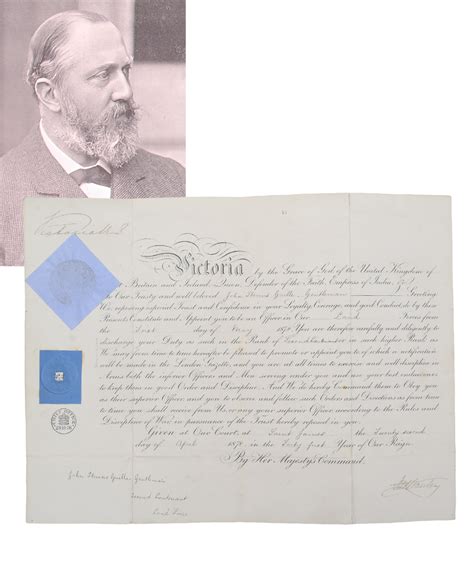 Victoria by the Grace of God of the United Kingdom of
Britain and Ireland, Queen, Defender of the Faith, Empress of India, &c.
To Our Trusty and well beloved John Gentleman Greeting
We, reposing especial Trust and Confidence in your Loyalty, Courage, and good Conduct, do by these
Presents Constitute and Appoint you to be an Officer in Our Land Forces from the
day of May 187 You are therefore carefully and diligently to
discharge your Duty as such in the Rank of or in such higher Rank as
We may from time to time hereafter be pleased to promote or appoint you to, of which a notification
will be made in the London Gazette, and you are at all times to exercise and well discipline in
Arms both the inferior Officers and Men serving under you and use your best endeavours
to keep them in good Order and Discipline. And We do hereby Command them to Obey you
as their superior Officer, and you to observe and follow such Orders and Directions as from time
to time you shall receive from Us or any your superior Officer, according to the Rules and
Discipline of War, in pursuance of the Trust hereby reposed in you.
Given at Our Court at Saint James's the
day of April 187 in the Forty first Year of Our Reign
By Her Majesty's Command.
John Gentleman
Second Lieutenant
Land Forces